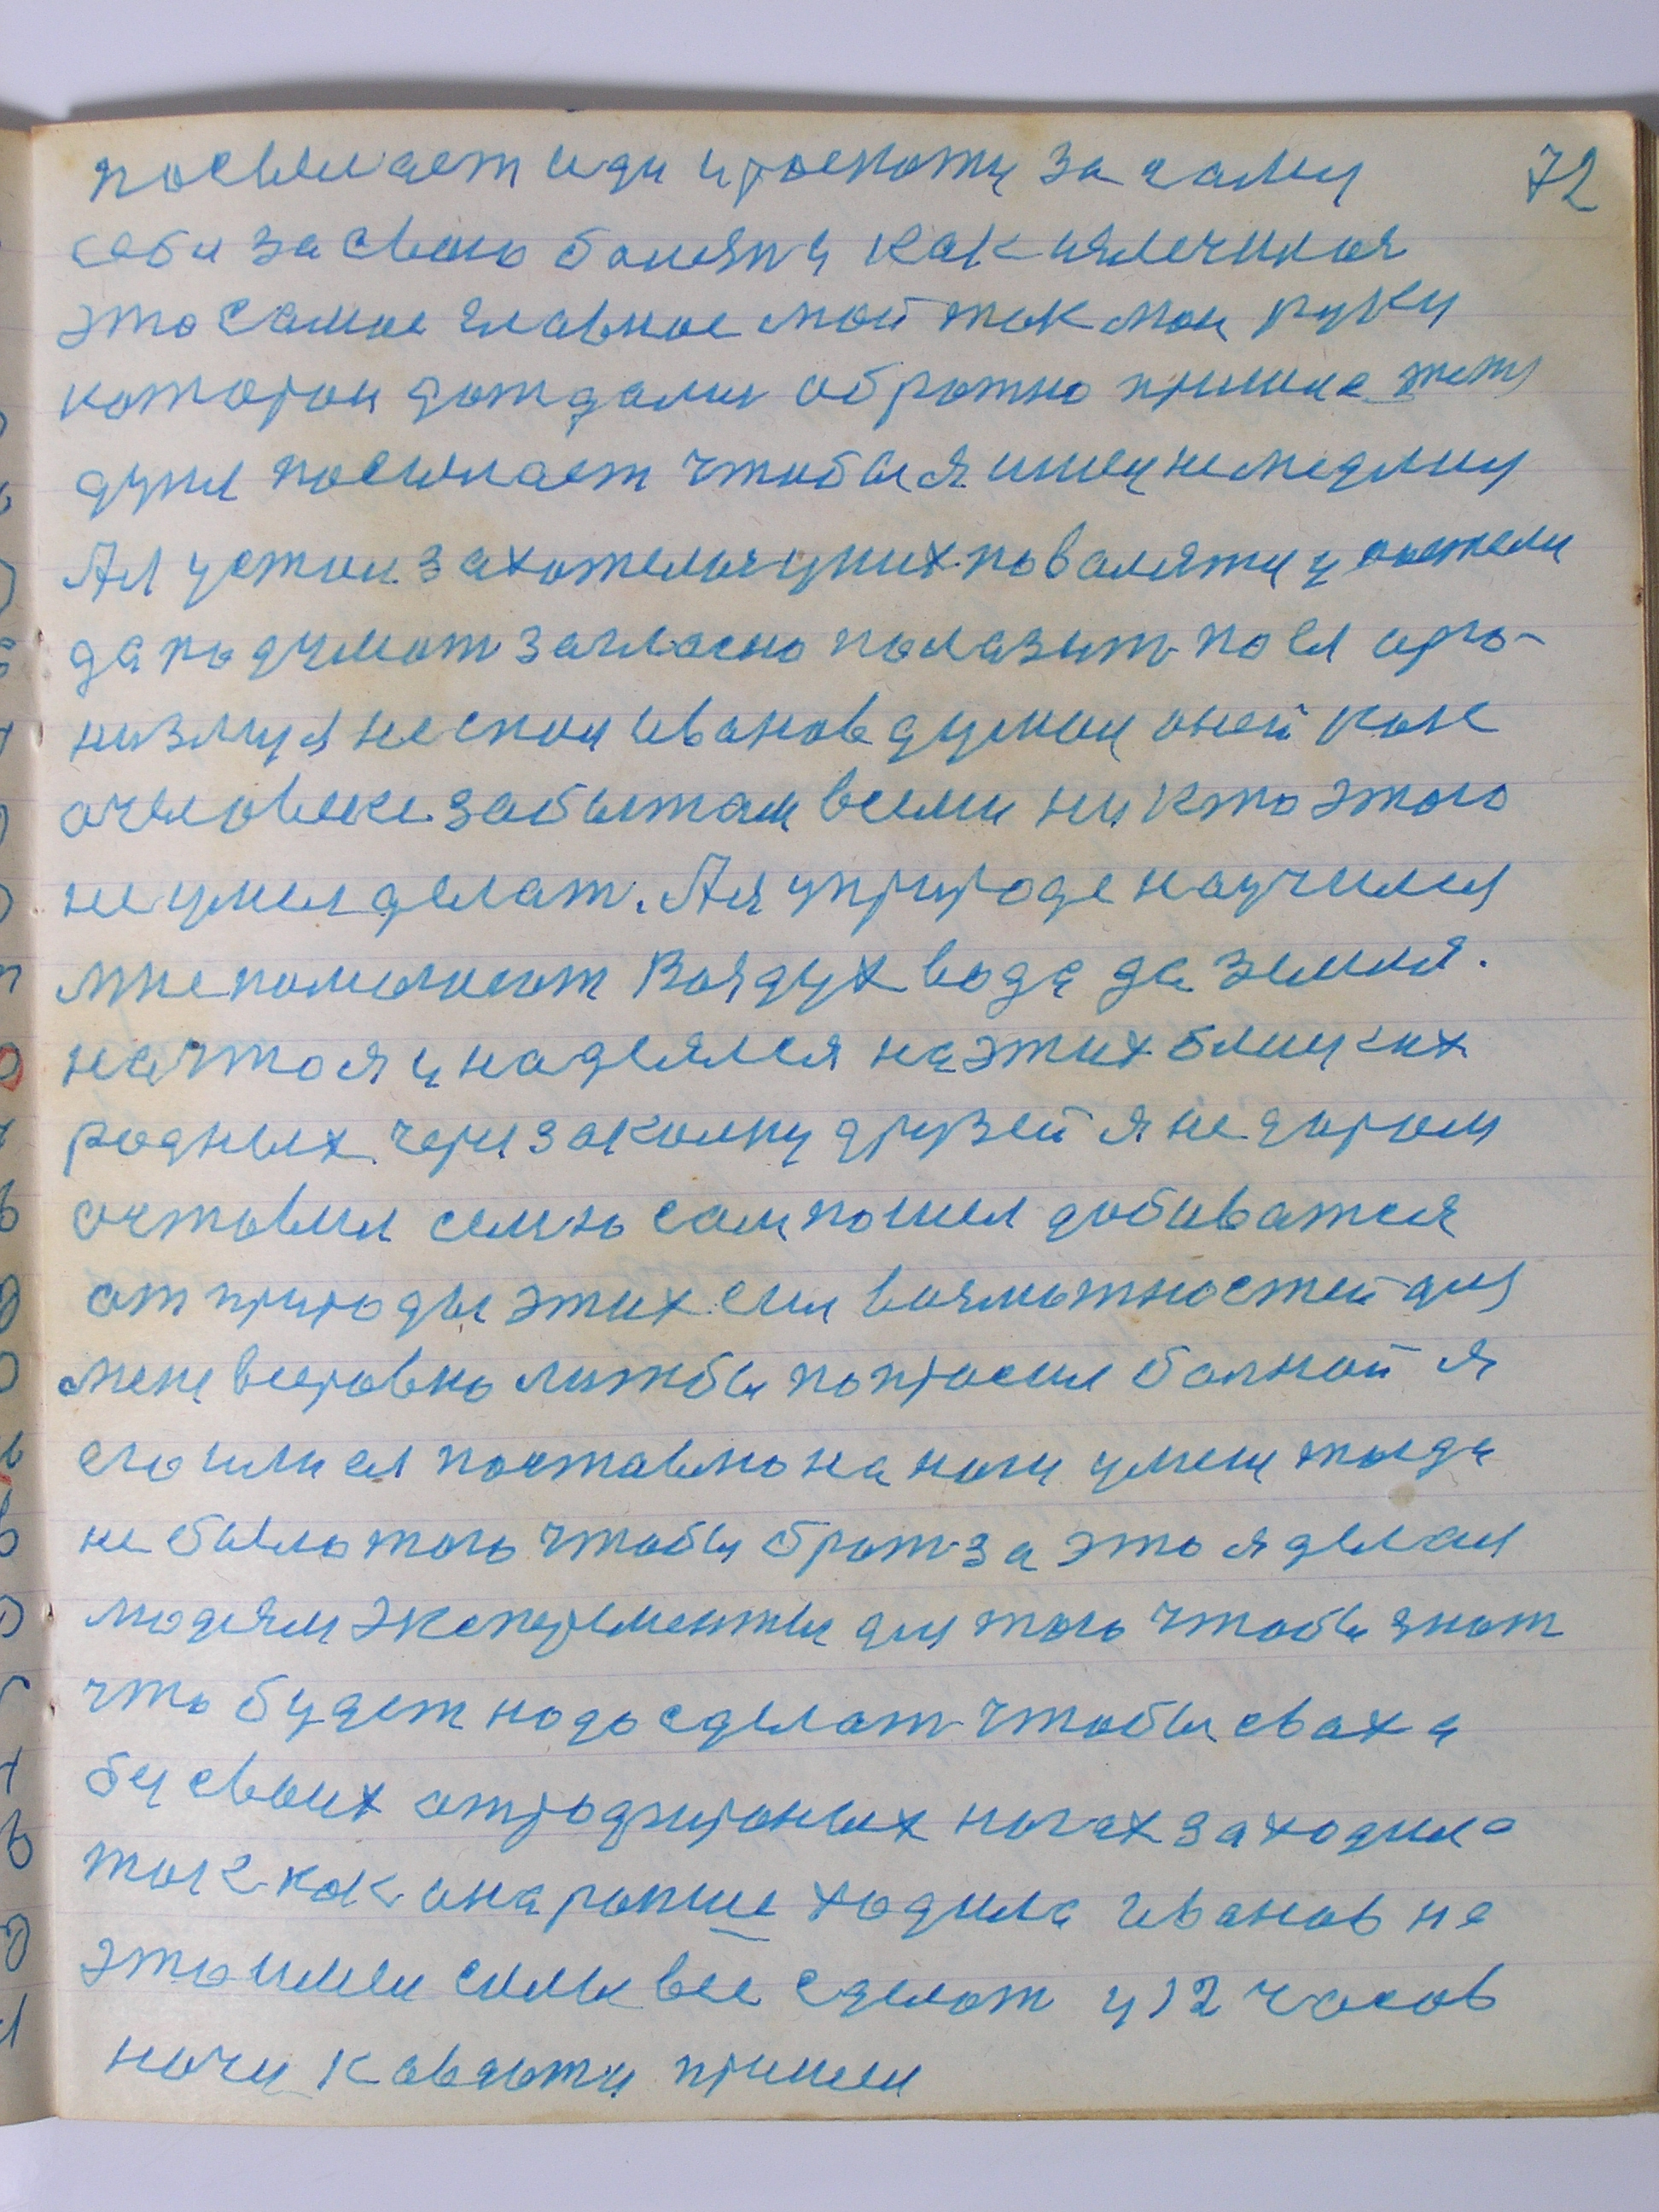 72
посылает иди и роскажи за сами
себи за свою болязнь как излечился
это самое главное мой ток мои руки
которои дождалис обратно пришла жена
посылает чтобы я ишел не медлиу
Ая устои захотелося у них поваляти у постели
да подумат загласно полазит по ея орга-
низму я не спои Иванов думои оней как
очеловеке забытаи всеми ни кто этого
не умел делат. Ая у природе научился
мне помогают Воздух вода да земля.
начто я и надеялся на этих близких
родных через закалку друзей я не даром
оставил семю сам пошел добиватся
от природы этих сил возможностей для
мене всеровно лижбы попросил болной я
его или ея поставлю на ноги у мене тогда
не было того чтобы брат за это я делал
людям эксперементы для того чтобы знат
что будет надо сделат чтобы сваха
бы своих атрофированых ногах заходила
так как она раньше ходила Иванов на
это имел силы все сделат у 12 часов
ночи к авахти пришли